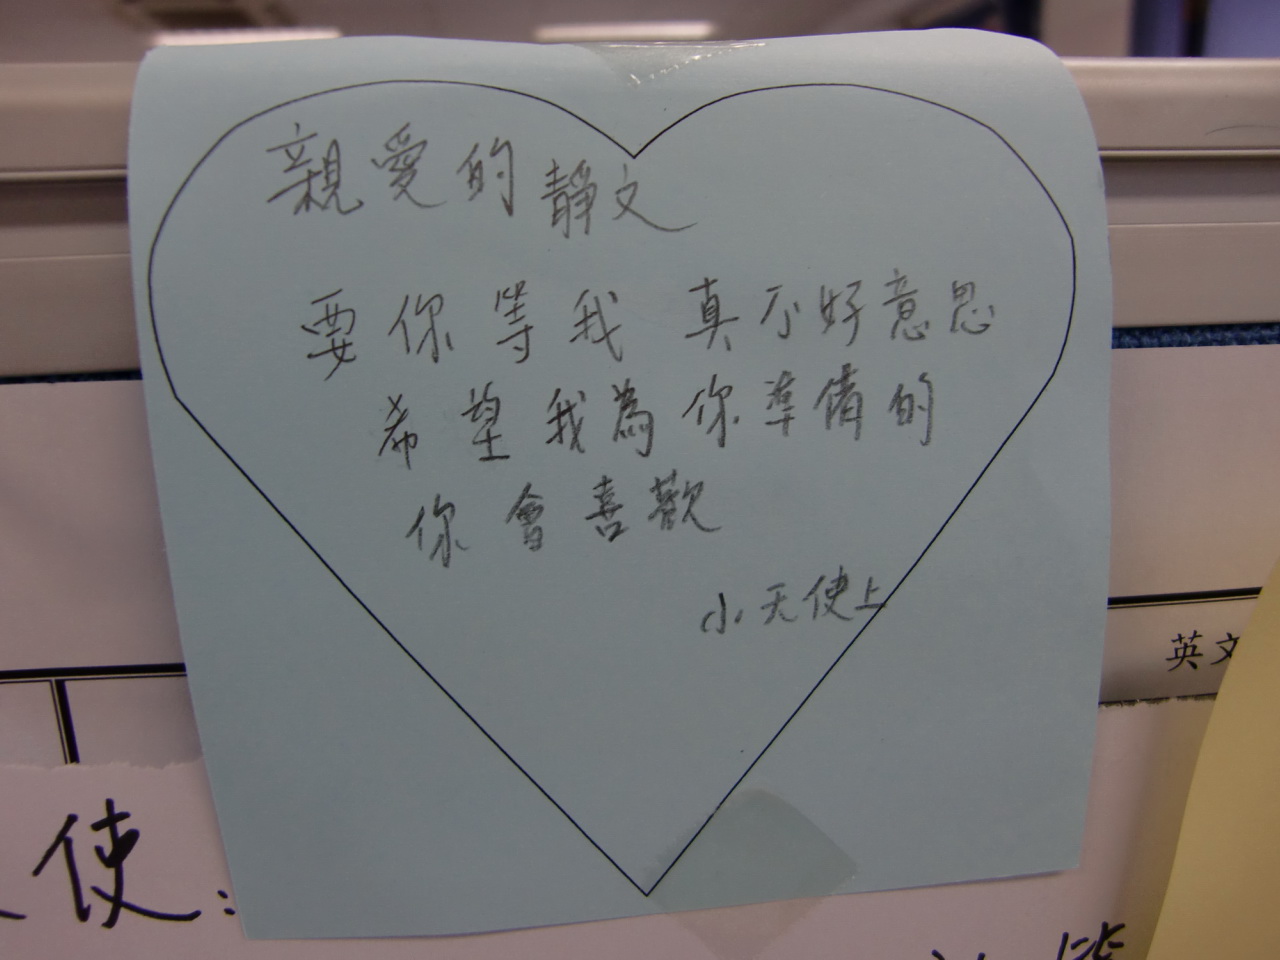 親愛的靜文
要你等我 真不好意思
希望我為你準備的
你會喜歡
小天使上
英文
使：